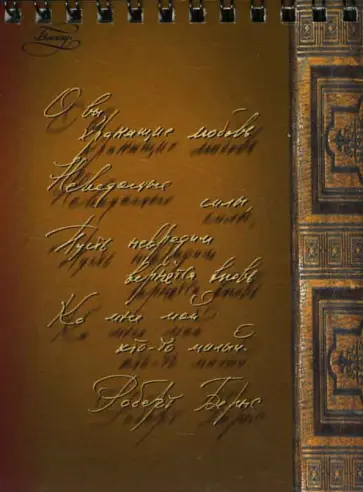 О вы
хранящие любовь
Неведомые
силы,
Пусть невредим
вернётся вновь
Ко мне мой
кто-то милый.
Роберт Бернс